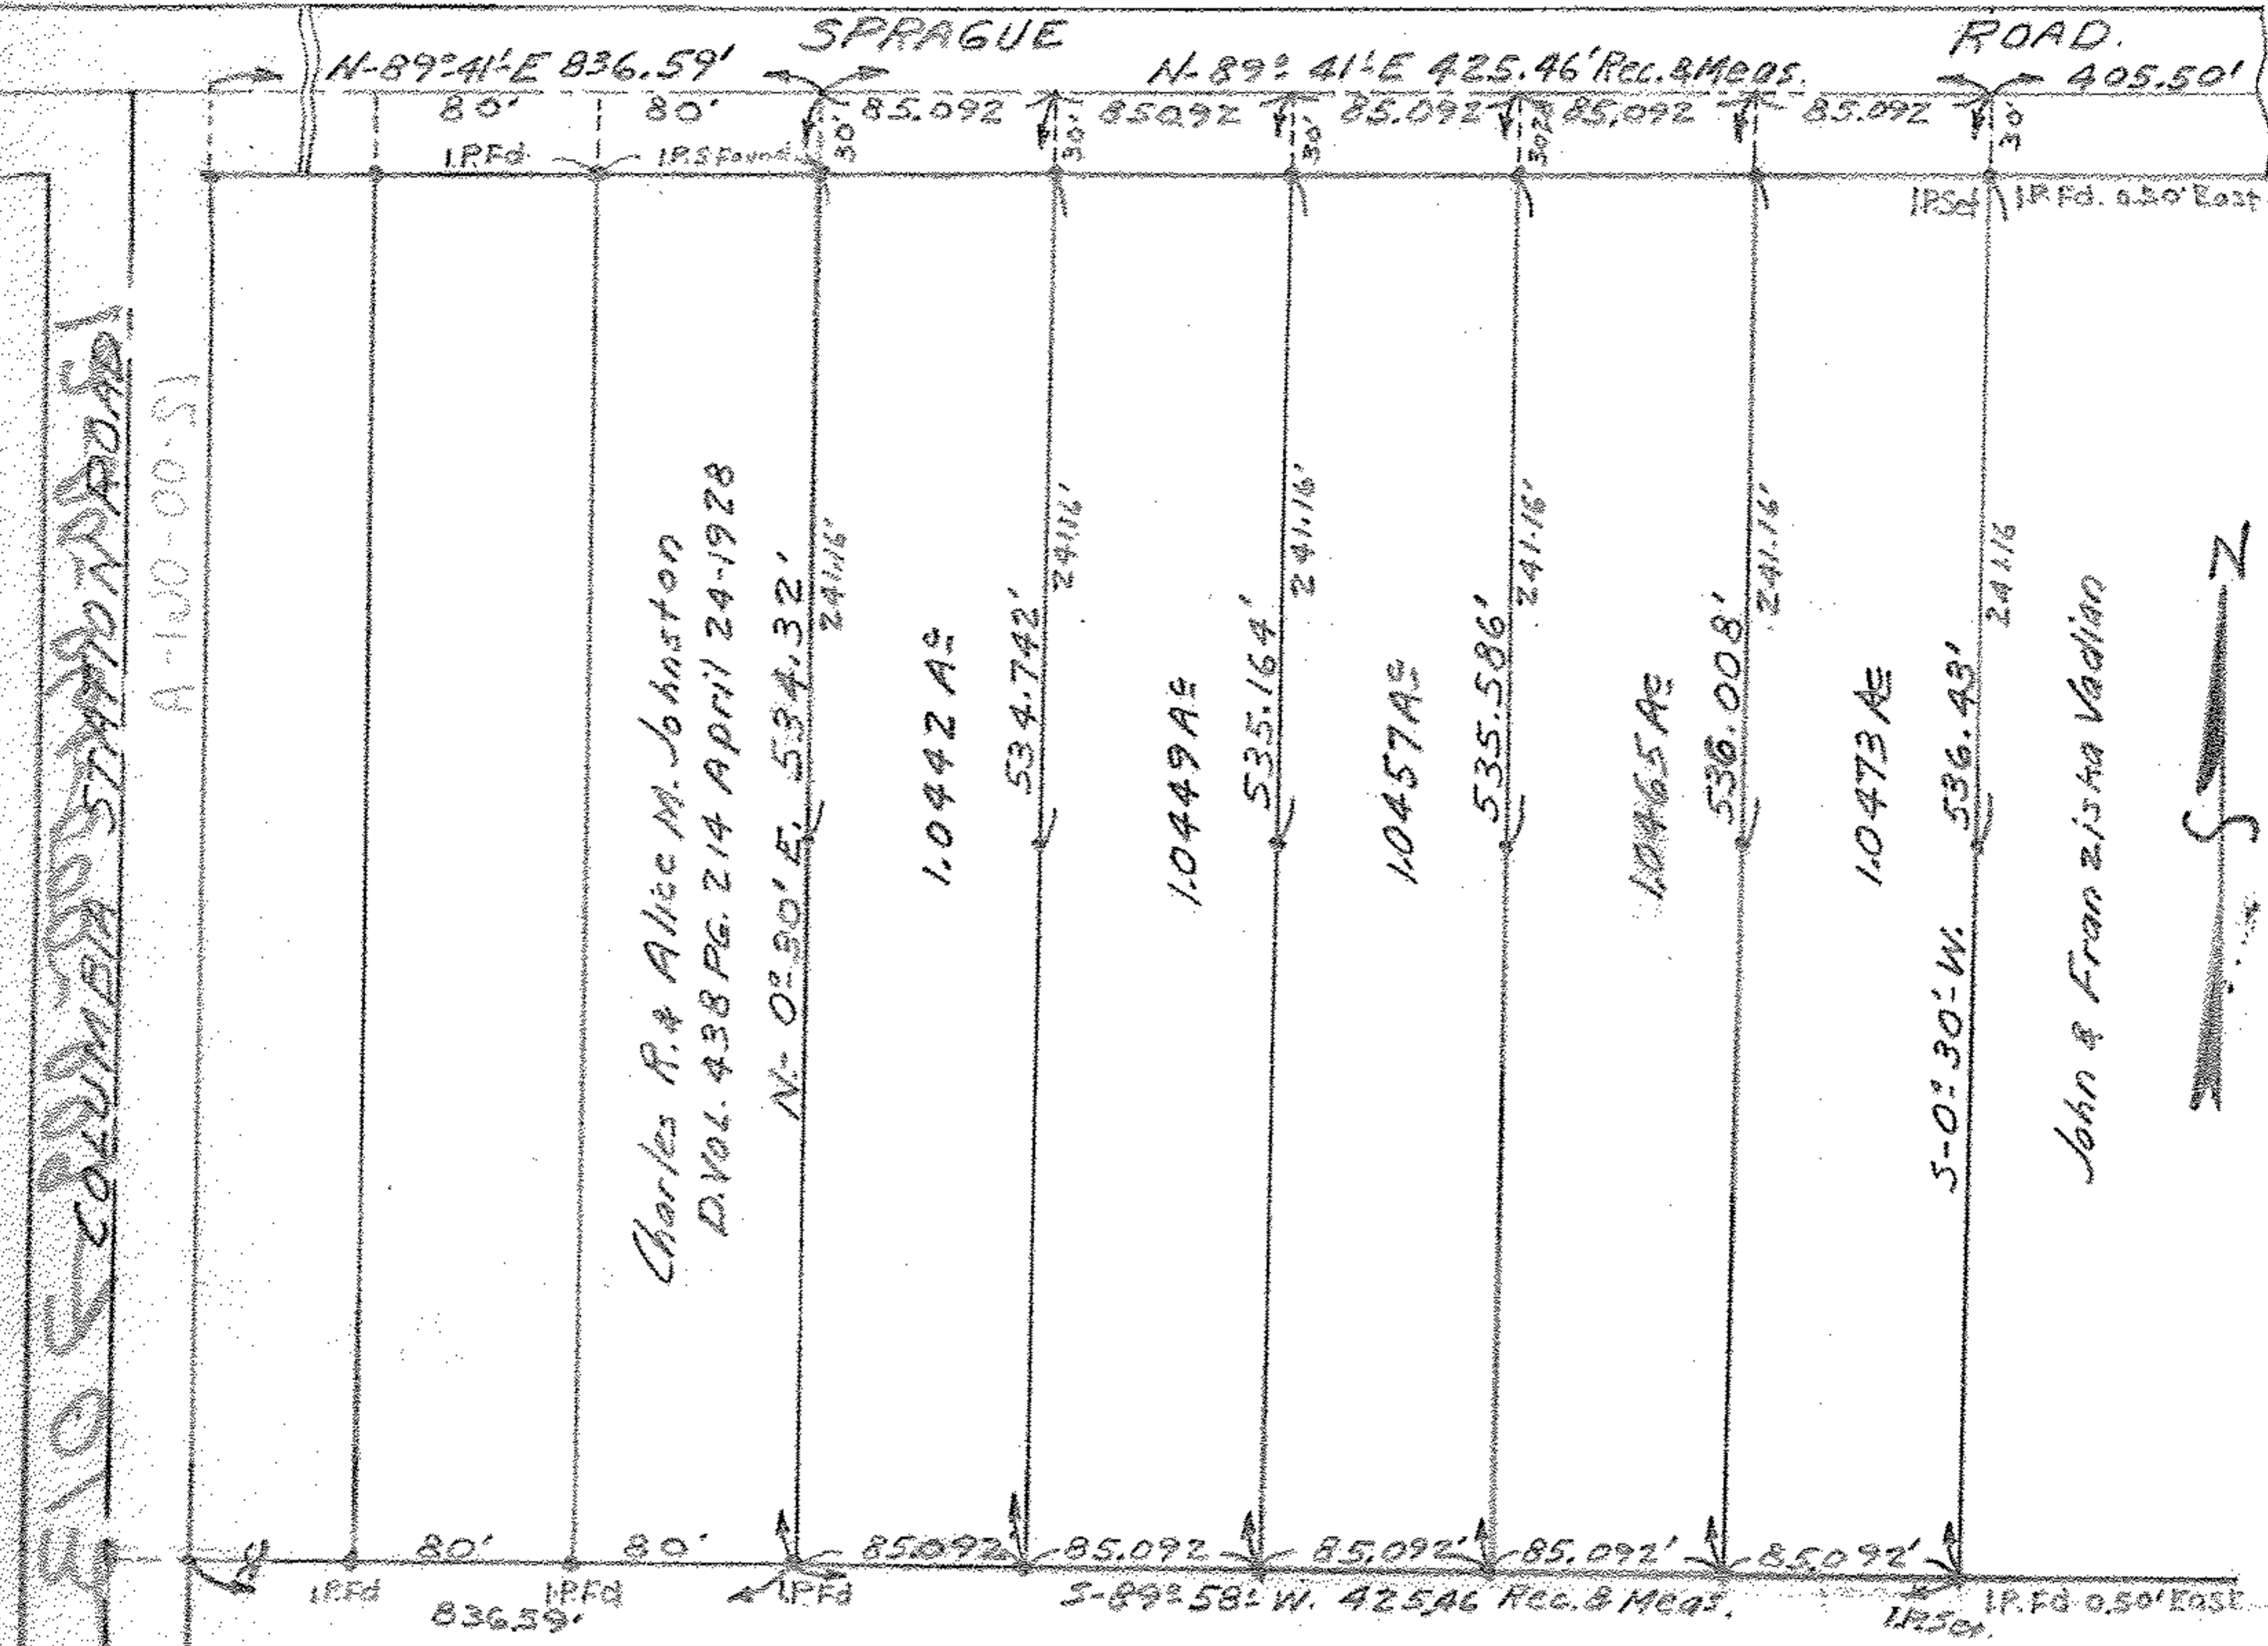 SPRAGUE ROAD.
N-89°-41'-E 836.59' N-89° 41'-E 425.46' Rec. & Meas. 405.50'
80' 80' 85.092 85.092 85.092 85.092 85.092
30' 30' 30' 30' 30'
I.P.Fd. I.P.S Found
I.P.Set I.P. Fd. 0.50' East
COLUMBIA STATION ROAD
Charles R. & Alice M. Johnston
D.VOL. 438 PG. 214 April 24-1928
N- 0° 30' E. 534.32'
241.16'
1.0442 Ac
534.742'
241.16'
1.0449 Ac
535.164'
241.16'
1.0457 Ac
535.586'
241.16'
1.0465 Ac
536.008'
241.16'
1.0473 Ac
S-0° 30'-W. 536.43'
241.16
John & Franziska Vadian
80' 80' 85.092 85.092 85.092' 85.092' 85.092'
I.P.Fd I.P.Fd I.P.Fd
836.59' S-89° 58'- W. 425.46 Rec. & Meas.
I.P.Set. I.P. Fd 0.50' East